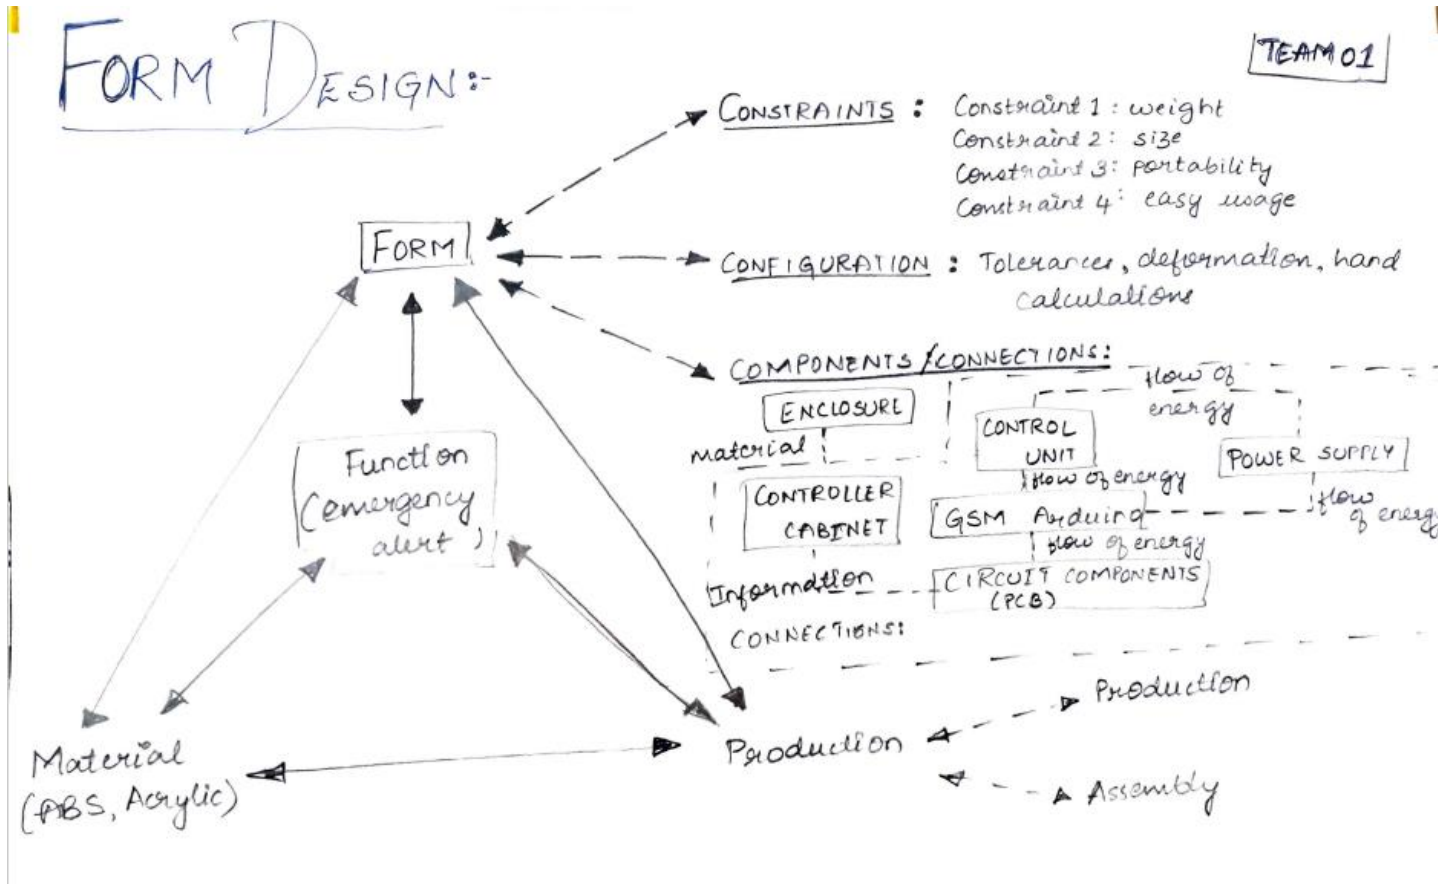 FORM DESIGN:-
TEAM 01
CONSTRAINTS : Constraint 1 : weight
Constraint 2 : size
Constraint 3 : portability
Constraint 4 : easy usage
FORM
CONFIGURATION : Tolerances, deformation, hand
calculations
COMPONENTS / CONNECTIONS:
flow of
energy
ENCLOSURE
CONTROL
UNIT
POWER SUPPLY
material
flow of energy
CONTROLLER
CABINET
GSM Arduino
flow
of energy
flow of energy
Information
CIRCUIT COMPONENTS
(PCB)
CONNECTIONS:
Function
(emergency
alert)
Production
Production
Assembly
Material
(ABS, Acrylic)